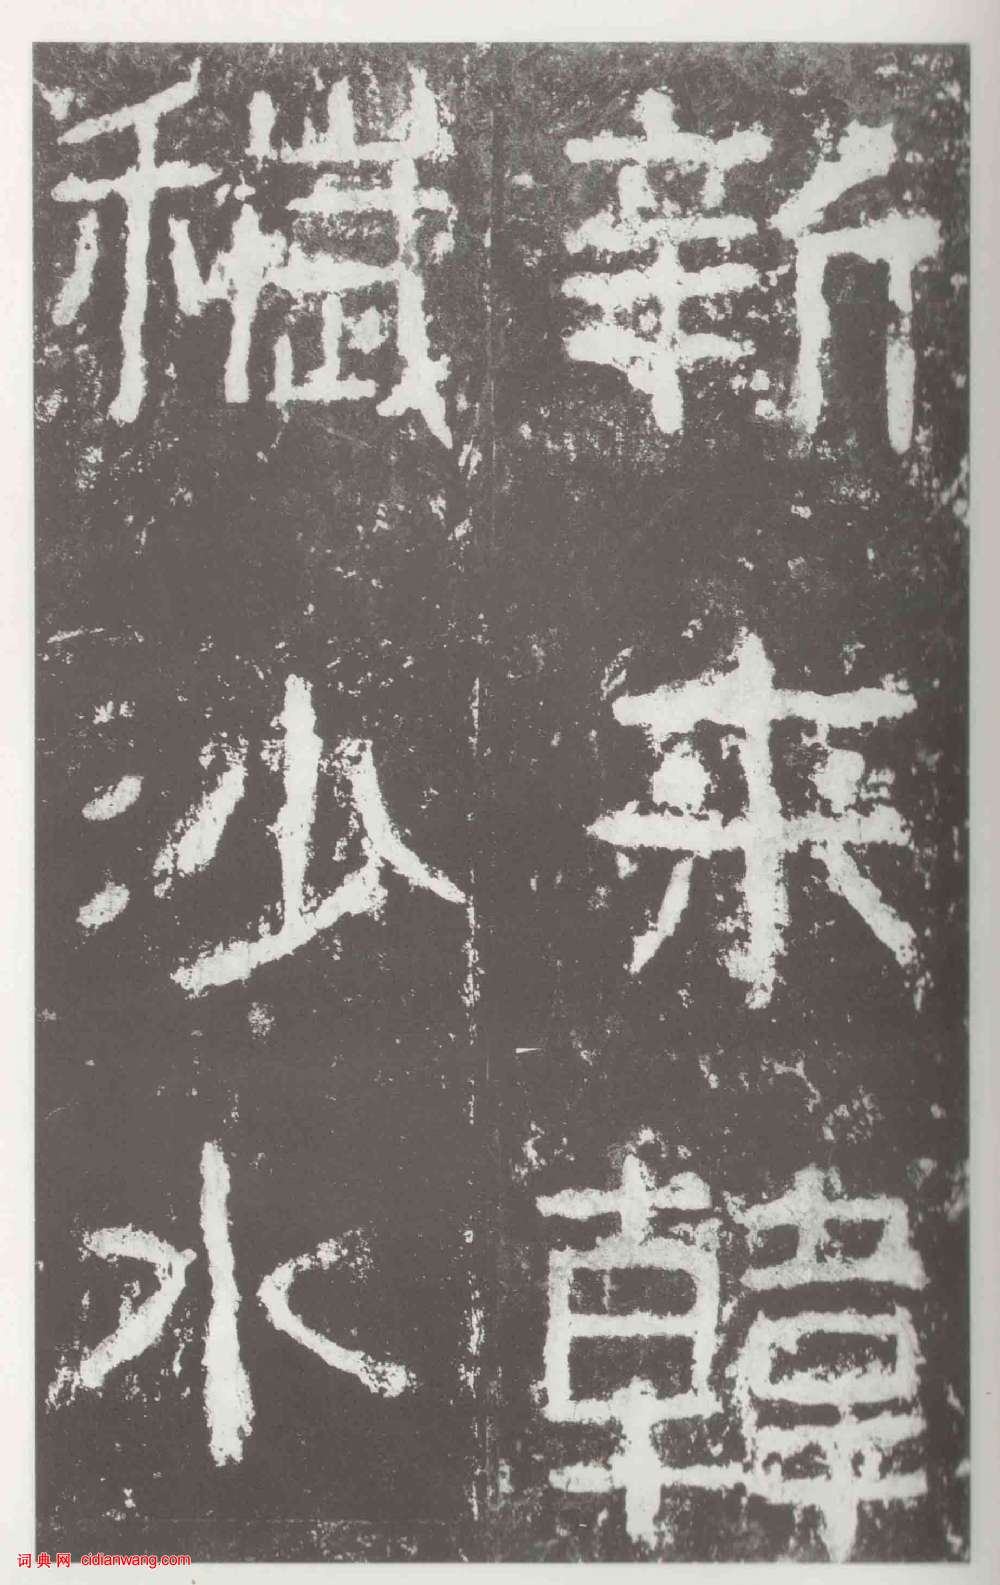 新來韓
穢沙水
词典网 cidianwang.com